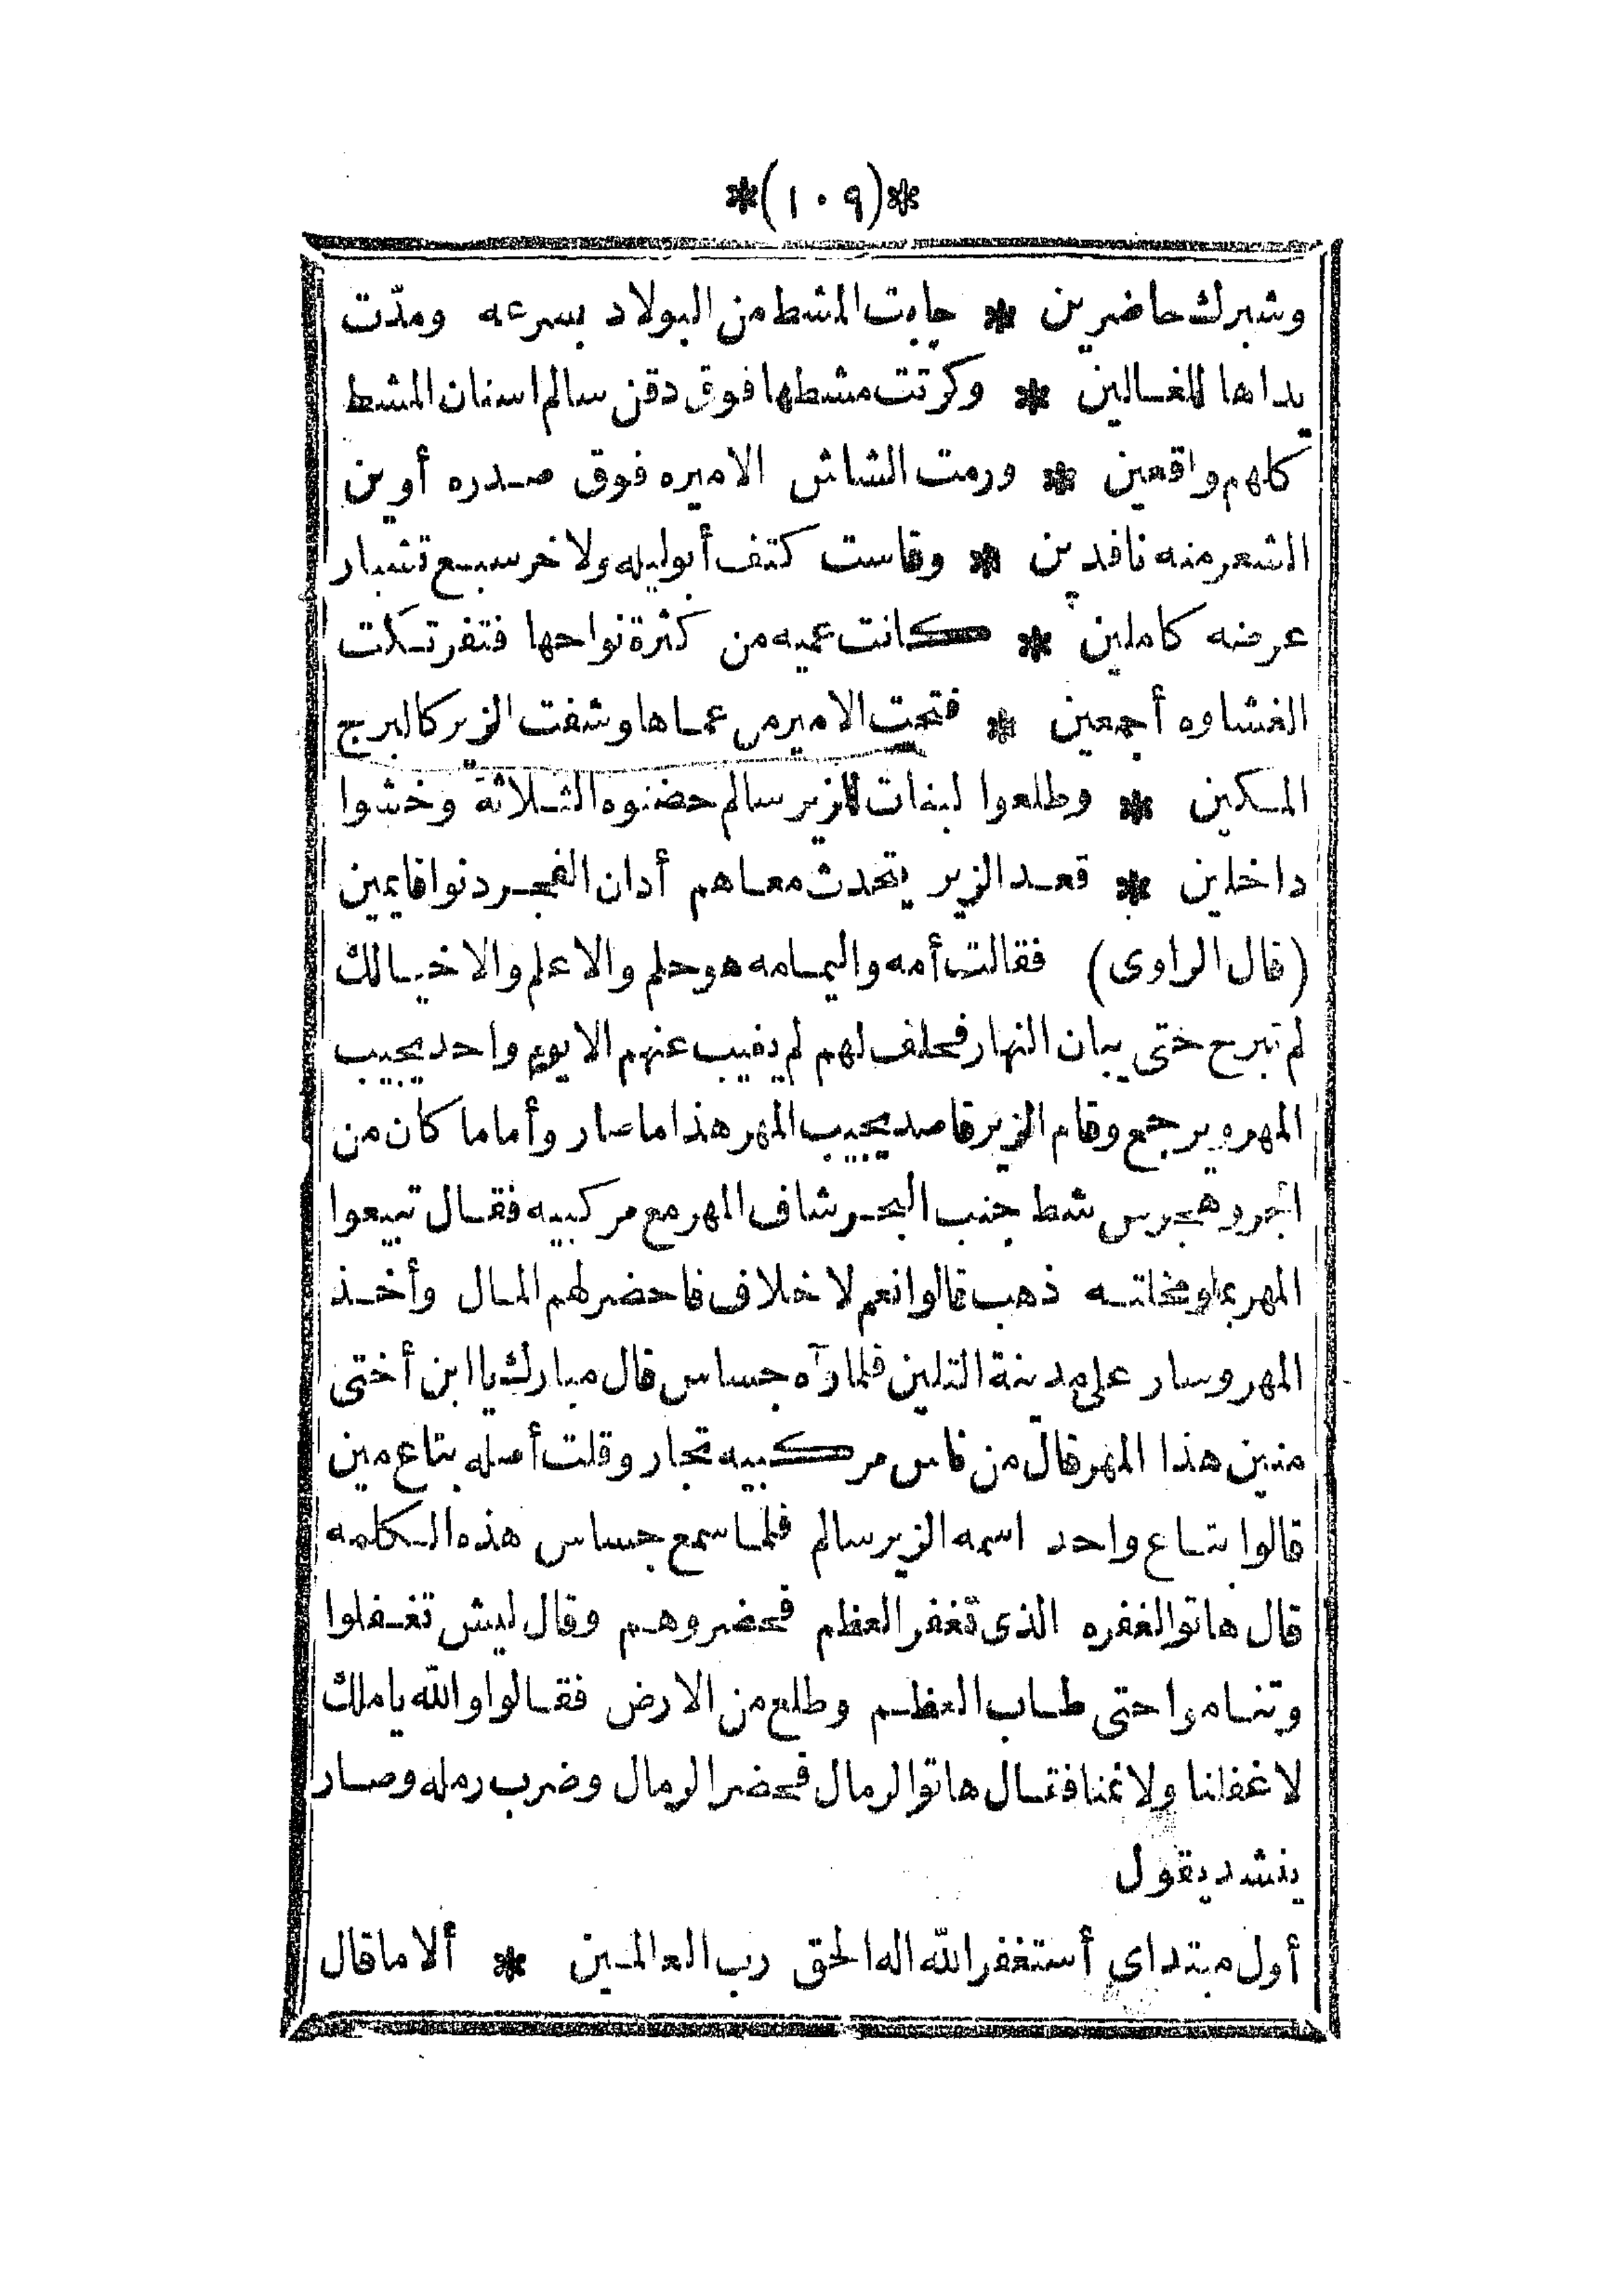 *(١٠٩)*
وشبرك حاضرين * جابت المشط من البولاد بسرعه ومدّت
يداها للغالين * وكرّتت مشطها فوق دقن سالم اسنان المشط
كلهم واقعين * ورمت الشاش الاميره فوق صدره أوين
الشعر منه نافدين * وقاست كتف أبوليله ولاخر سبع تشبار
عرضه كاملين * كانت عميه من كثرة نواحها فتفرتكت
الغشاوه أجمعين * فتحت الاميرمن عماها وشفت الزير كالبرج
المسكين * وطلعوا لبنات للزير سالم حضنوه الثلاثة وخشوا
داخلين * قعد الزير يتحدث معاهم أدان الفجر دنوا قايمين
(قال الراوى) فقالت أمه واليمامه هو حلم والا علم والا خيالك
لم تبرح حتى يبان النهار فحلف لهم لم يغيب عنهم الا يوم واحد يجيب
المهر ويرجع وقام الزير قاصد يجيب المهر هذا ما صار وأما ما كان من
الجرو هجرس شط جنب البحر شاف المهر مع مركبيه فقال تبيعوا
المهر بملو مخلاته ذهب قالوا نعم لا خلاف فاحضر لهم المال وأخذ
المهر وسار على مدينة التلين فلما رآه جساس قال مبارك يا ابن أختى
منين هذا المهر قال من ناس مركبيه تجار وقلت أصله بتاع مين
قالوا بتاع واحد اسمه الزير سالم فلما سمع جساس هذه الكلمه
قال هاتوا الغفره الذى تغفر العظم فحضروهم وقال ليش تغفلوا
وتناموا حتى طاب العظم وطلع من الارض فقالوا والله يا ملك
لا غفلنا ولا نمنا فقال هاتوا الرمال فحضر الرمال وضرب رمله وصار
ينشد يقول
أول مبتداى أستغفر الله اله الحق رب العالمين * ألا ما قال